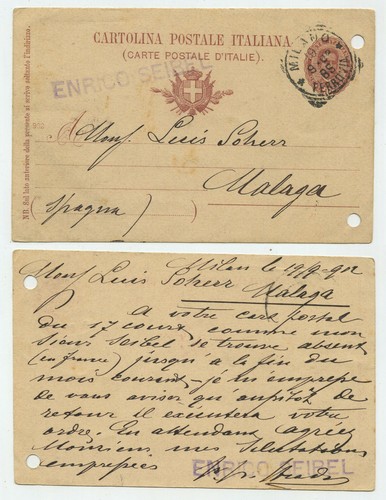 CARTOLINA POSTALE ITALIANA
(CARTE POSTALE D'ITALIE).
ENRICO SEIBEL
MILANO
FERROVIA
NB. Sul lato anteriore della presente si scrive soltanto l'indirizzo.
Monsr. Luis Scherr
Malaga
(Spagna)
Milan le 19/9-902
Monsr Luis Scherr
Malaga
A votre cart postal
du 17 court comme mon
sieur Seibel se trouve absent
(en france) jusqu'à la fin du
mois courant je m'emprepe
de vous aviser qu'aupitôt de
retour il executera votre
ordre. En attendant agréez
Mouriens mes Salutations
emprepées
ENRICO SEIBEL